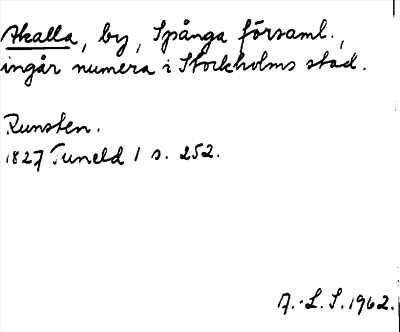 Akalla, by, Spånga församl.,
ingår numera i Stockholms stad.
Runsten.
1827 Tuneld 1 s. 252.
A.-L. S. 1962.